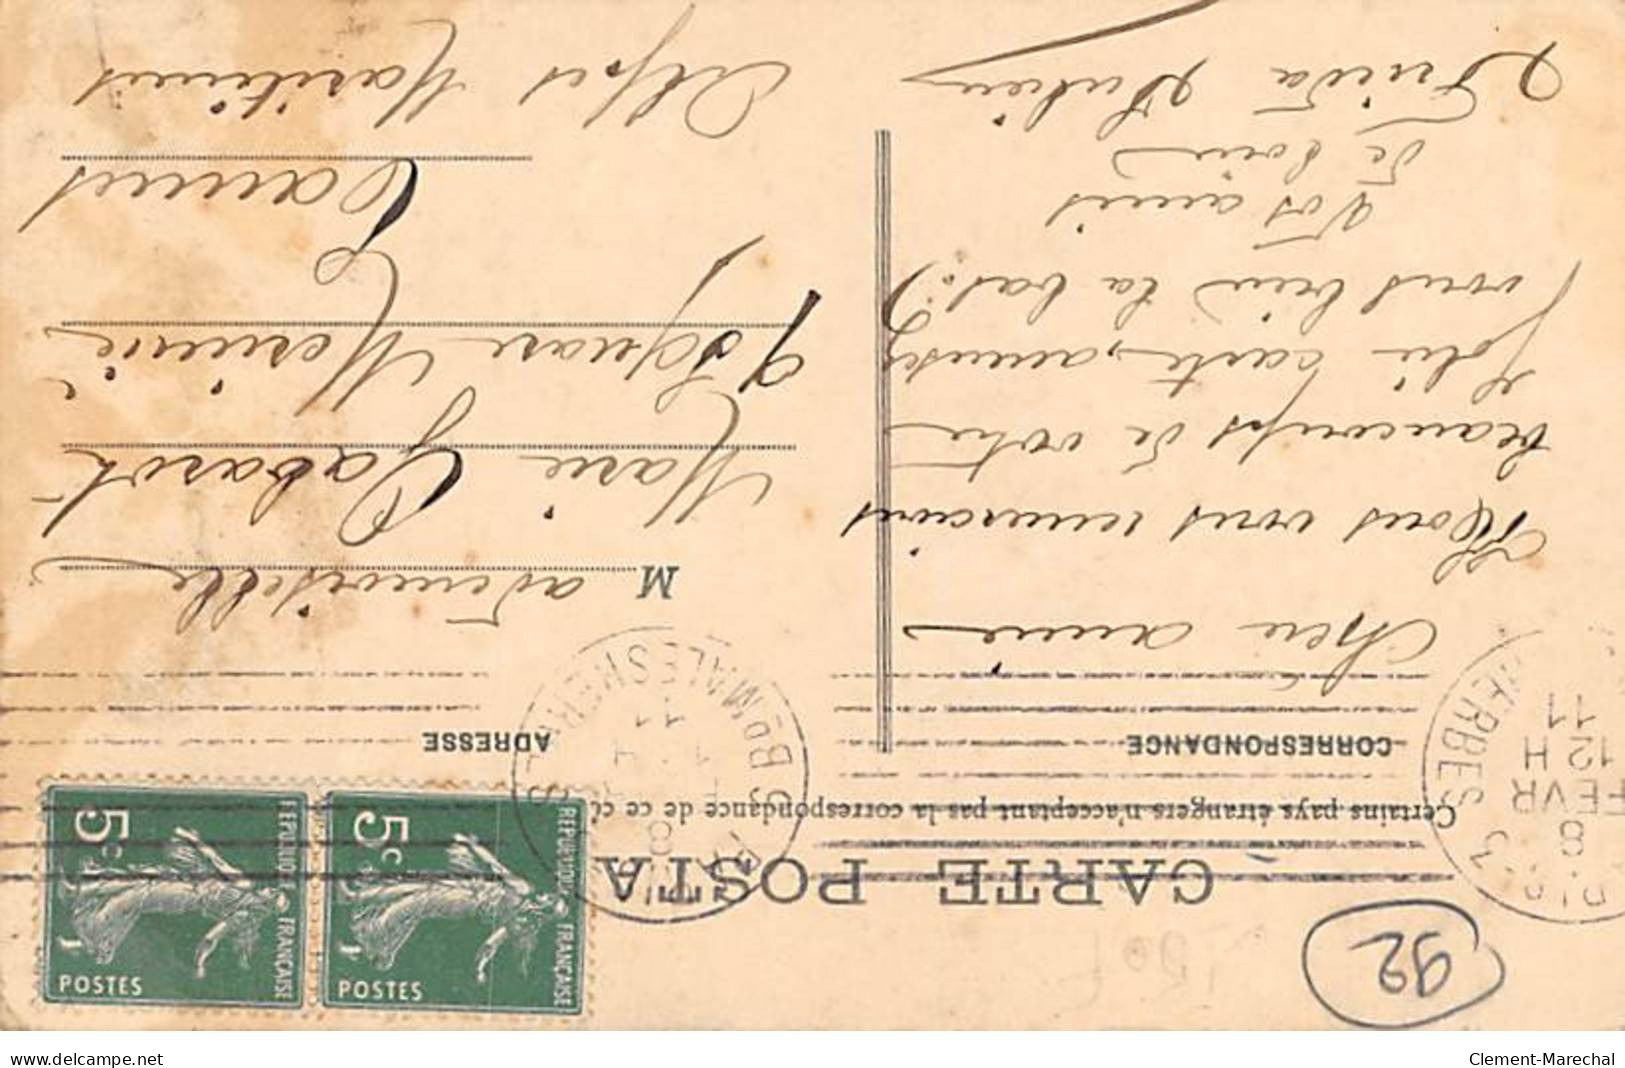 CARTE POSTA
Certains pays étrangers n'acceptent pas la correspondance de ce c
CORRESPONDANCE
ADRESSE
Chère amies
Nous vous remercions
beaucoups de votre
Jolie carte, amusez
vous bien la bas.
Vos amis
de loin
Frieda
M ademoiselle
Marie Gabarot
9 Square Merimée
Cannes
Alpes Maritimes
8
FEVR
12 H
11
MALESHERBES
BD MALESHERBES
8
11
5c
REPUBLIQUE FRANÇAISE
POSTES
5c
REPUBLIQUE FRANÇAISE
POSTES
92
www.delcampe.net
Clement-Marechal